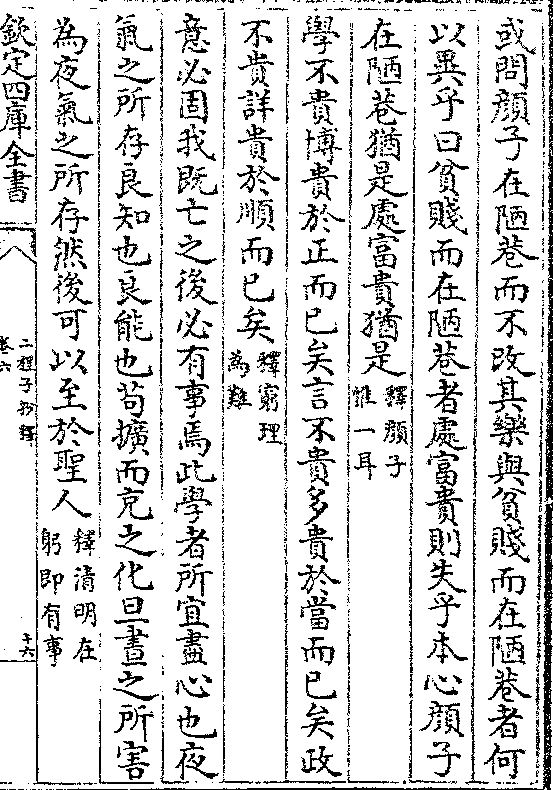 或問顔子在陋巷而不改其樂與貧賤而在陋巷者何
以異乎曰貧賤而在陋巷者處富貴則失乎本心顔子
在陋巷猶是處富貴猶是釋顔子惟一耳
學不貴博貴於正而已矣言不貴多貴於當而已矣政
不貴詳貴於順而已矣釋窮理為難
意必固我既亡之後必有事焉此學者所宜盡心也夜
氣之所存良知也良能也苟擴而充之化旦晝之所害
為夜氣之所存然後可以至於聖人釋清明在躬即有事
欽定四庫全書
二程子抄釋
卷六
十六